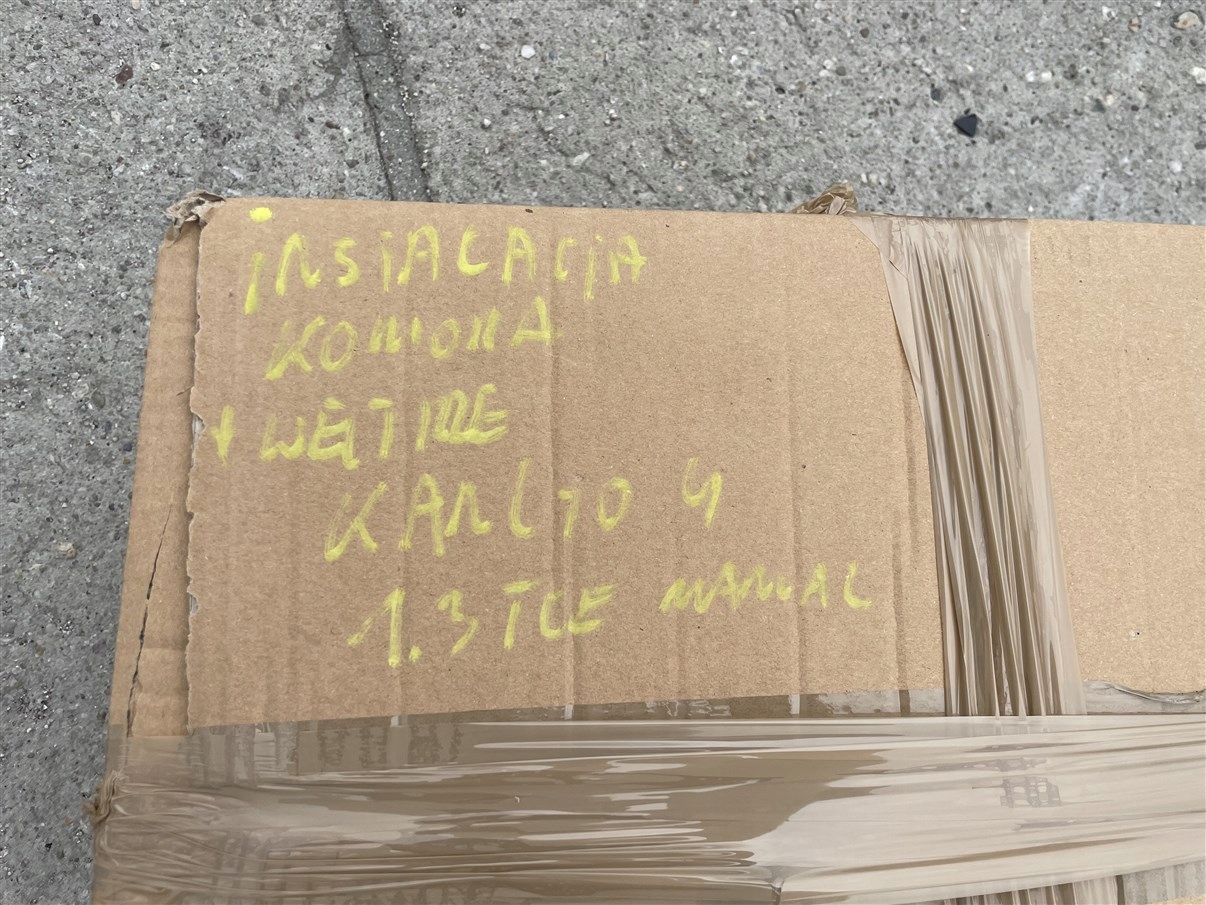 iNSTALACJA
KOMORA
+ WĘTRZE
KANGOO 4
1.3 TCE MANUAL